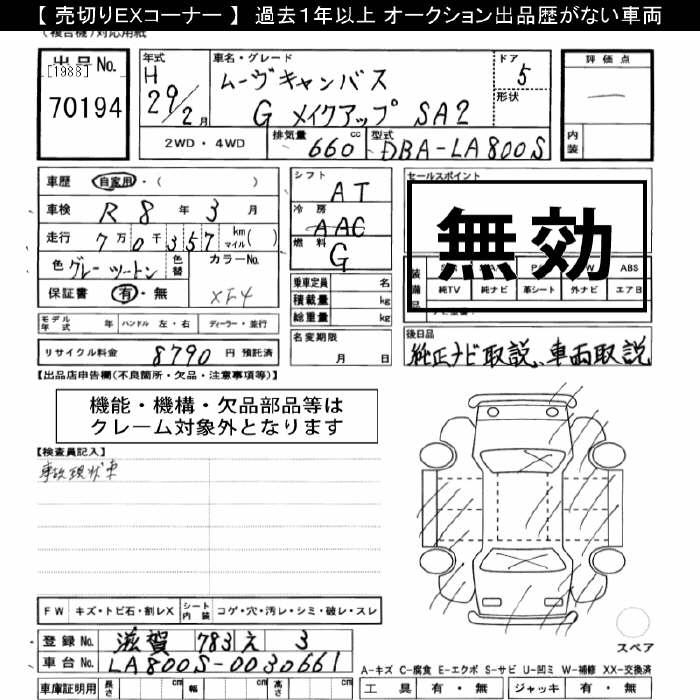 【 売切りEXコーナー 】 過去1年以上 オークション出品歴がない車両
(複合機)対応用紙
出品No. [1988] 70194
年式 H 29/2月
車名・グレード ムーヴキャンバス G メイクアップ SA2
ドア 5
形状
評価点 —
内装
2WD・4WD 排気量 660 cc 型式 DBA-LA800S
車歴 自家用・( )
車検 R 8年 3月
走行 7万0千357 km マイル( )
色 グレーツートン 色替 カラーNo. XF4
保証書 有・無
シフト AT
冷房 AAC
燃料 G
乗車定員 名
積載量 kg
総重量 kg
セールスポイント
無効
装備品 ABS
純TV 純ナビ 革シート 外ナビ エアB
モデル年式 年 ハンドル 左・右 ディーラー・並行
名変期限 月 日
後日品 純正ナビ取説、車両取説
リサイクル料金 8790 円 預託済
【出品店申告欄(不良箇所・欠品・注意事項等)】
機能・機構・欠品部品等は
クレーム対象外となります
【検査員記入】
事故現状車
FW キズ・トビ石・割レX シート内装 コゲ・穴・汚レ・シミ・破レ・スレ
スペア
登録No. 滋賀 783 え 3
車台No. LA800S-0030661
A-キズ C-腐食 E-エクボ S-サビ U-凹ミ W-補修 XX-交換済
車庫証明用 長さ cm 幅 cm 高さ cm
工具 有・無 ジャッキ 有・無